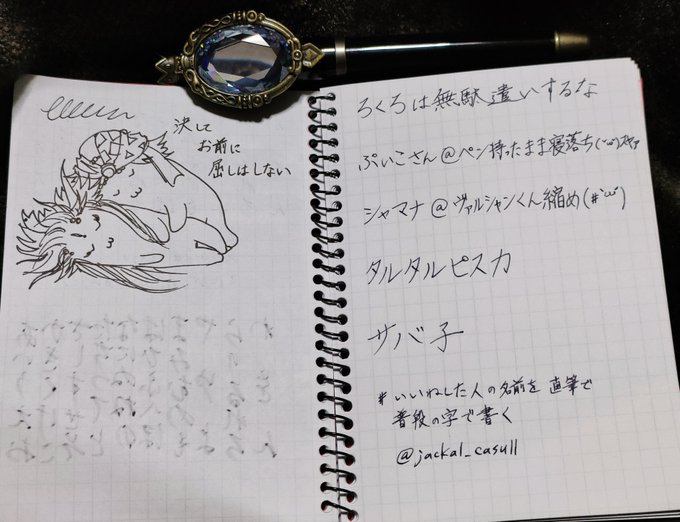 決して
お前に
屈しはしない
ろくろは無駄遣いするな
ぷいこさん@ペン持ったまま寝落ち(˘ω˘)スヤァ
シャマナ@ヴァルシャンくん縮め(#˘ω˘)
タルタルピスカ
サバ子
#いいねした人の名前を直筆で
普段の字で書く
@jackal_casull